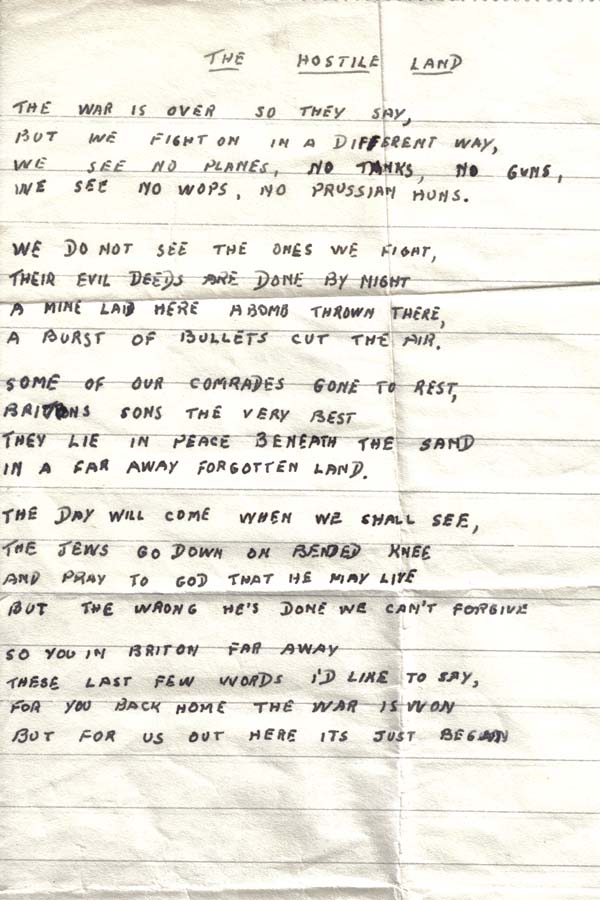 THE HOSTILE LAND
THE WAR IS OVER SO THEY SAY,
BUT WE FIGHT ON IN A DIFFERENT WAY,
WE SEE NO PLANES, NO TANKS, NO GUNS,
WE SEE NO WOPS, NO PRUSSIAN HUNS.
WE DO NOT SEE THE ONES WE FIGHT,
THEIR EVIL DEEDS ARE DONE BY NIGHT
A MINE LAID HERE A BOMB THROWN THERE,
A BURST OF BULLETS CUT THE AIR.
SOME OF OUR COMRADES GONE TO REST,
BRITONS SONS THE VERY BEST
THEY LIE IN PEACE BENEATH THE SAND
IN A FAR AWAY FORGOTTEN LAND.
THE DAY WILL COME WHEN WE SHALL SEE,
THE JEWS GO DOWN ON BENDED KNEE
AND PRAY TO GOD THAT HE MAY LIVE
BUT THE WRONG HE'S DONE WE CAN'T FORGIVE
SO YOU IN BRITON FAR AWAY
THESE LAST FEW WORDS I'D LIKE TO SAY,
FOR YOU BACK HOME THE WAR IS WON
BUT FOR US OUT HERE ITS JUST BEGAN